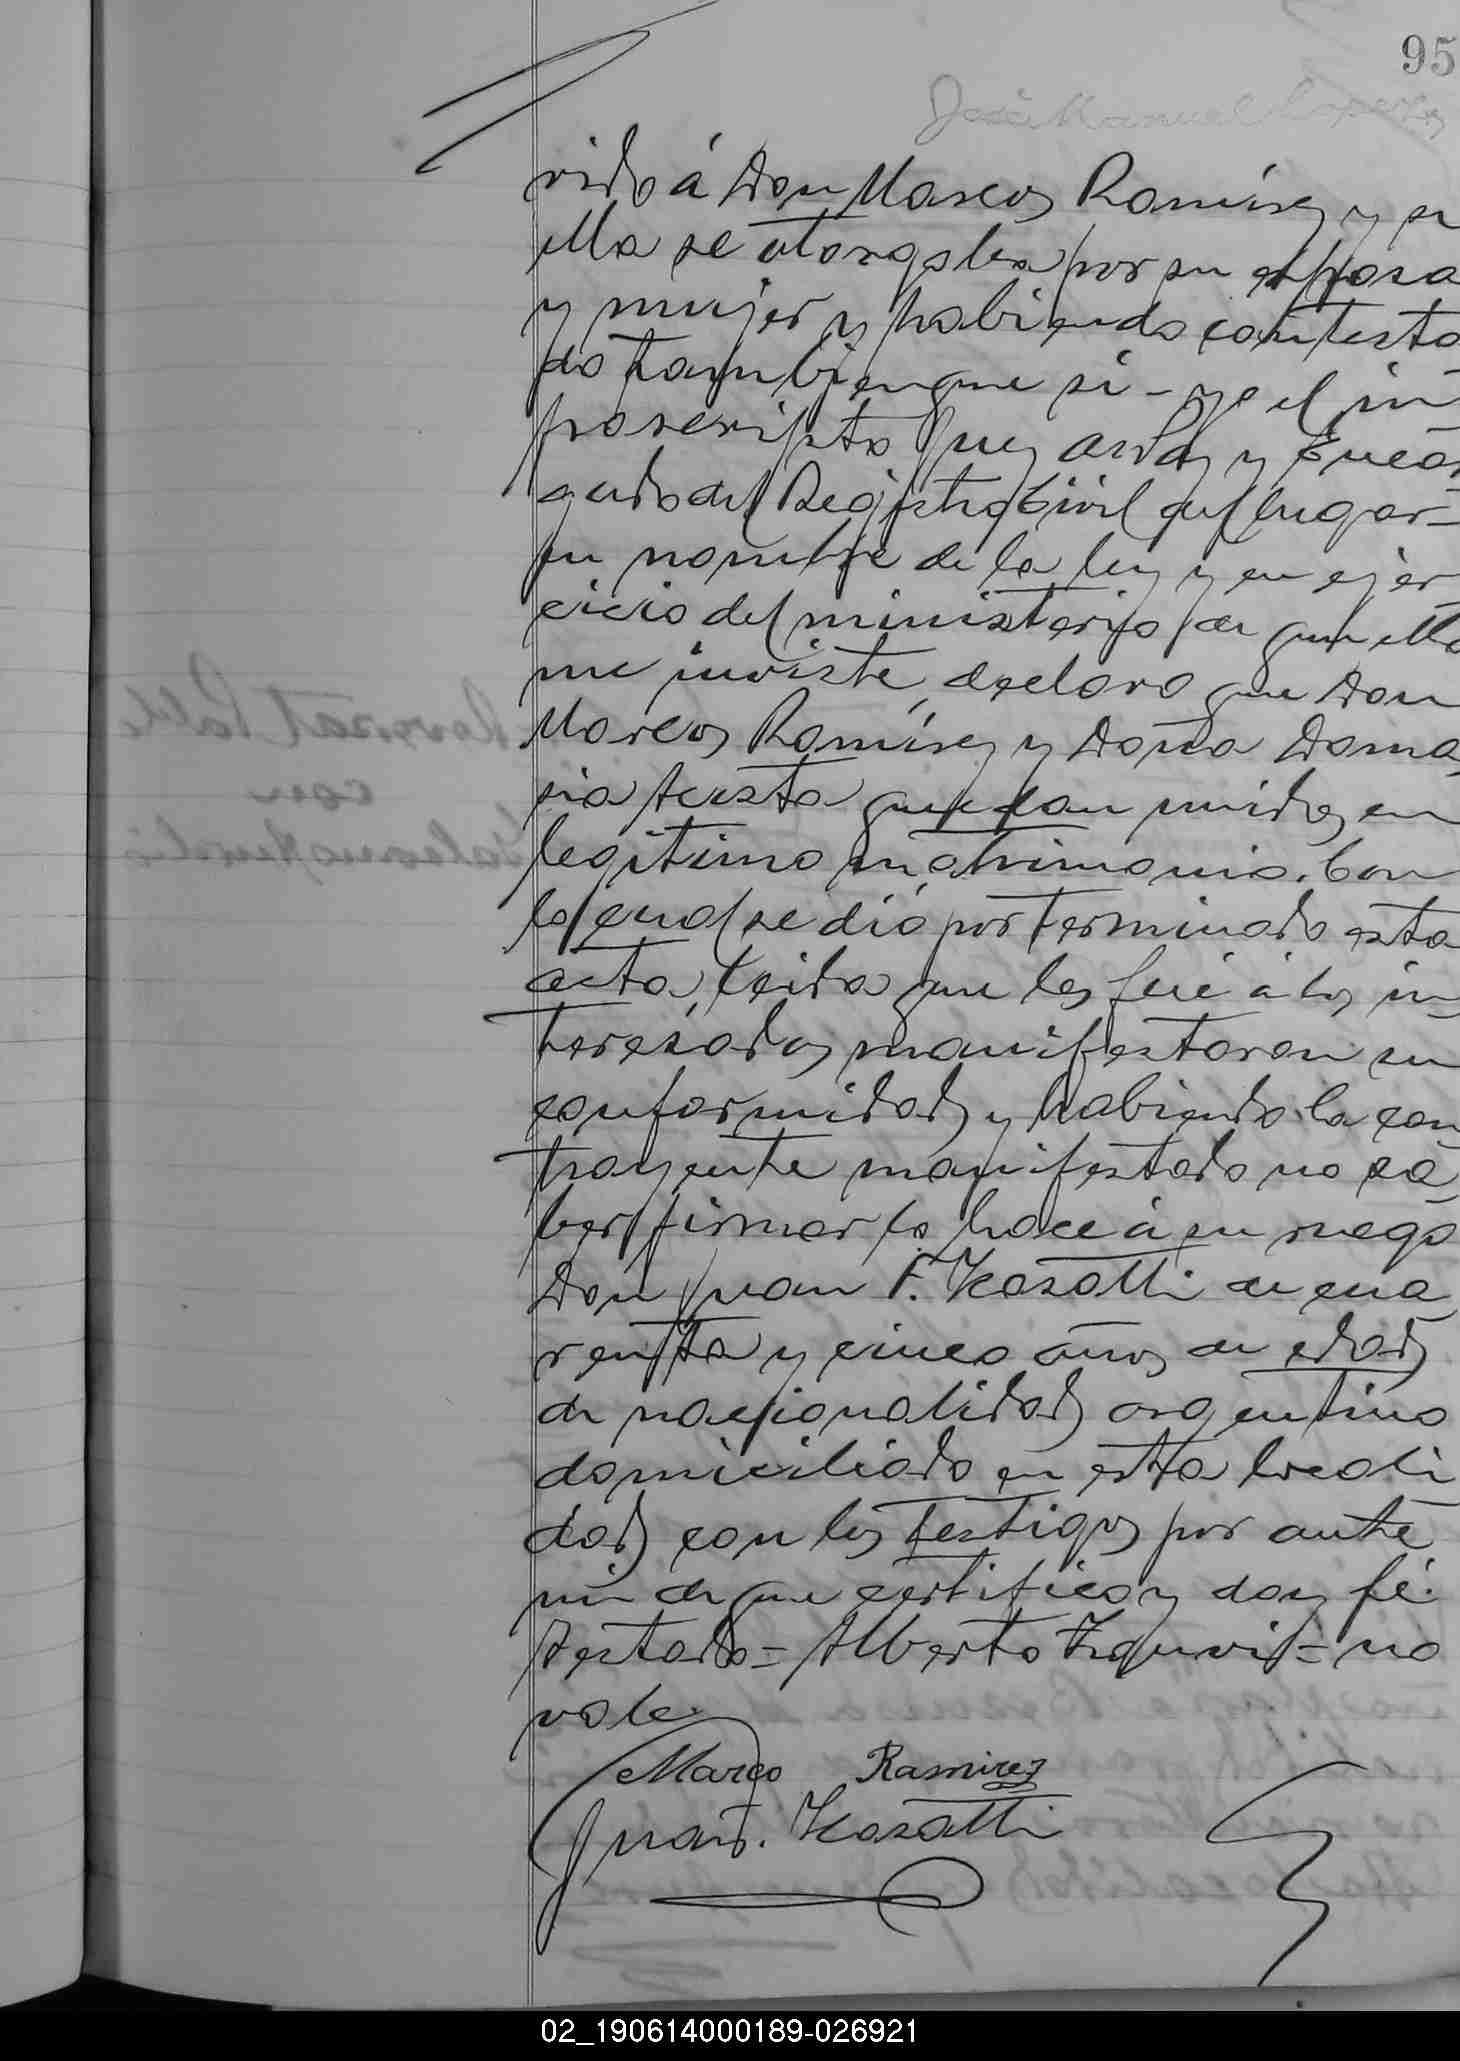 95
José Manuel
rido á Don Marcos Ramírez y si
ella se otorgaba por su esposa
y mujer y habiendo contesta
do tambien que si - yo el in
frascripto Juez de Paz y Encar
gado del Registro Civil del lugar -
en nombre de la ley y en ejer
cicio del ministerio de que ella
me inviste, declaro que Don
Marcos Ramírez y Doña Dama
sia Acosta quedan unidos en
legítimo matrimonio. Con
lo cual se dió por terminado esta
acta, leida que les fué á los in
teresados, manifestaron su
conformidad y habiendo la con
trayente manifestado no sa
ber firmar lo hace á su ruego
Don Juan F. Kosatti de cua
renta y cinco años de edad
de nacionalidad argentino
domiciliado en esta locali
dad con los testigos por ante
mi de que certifico y doy fé.
Testado = Alberto = no
vale.
Marco Ramirez
Juan F. Kosatti
02_190614000189-026921